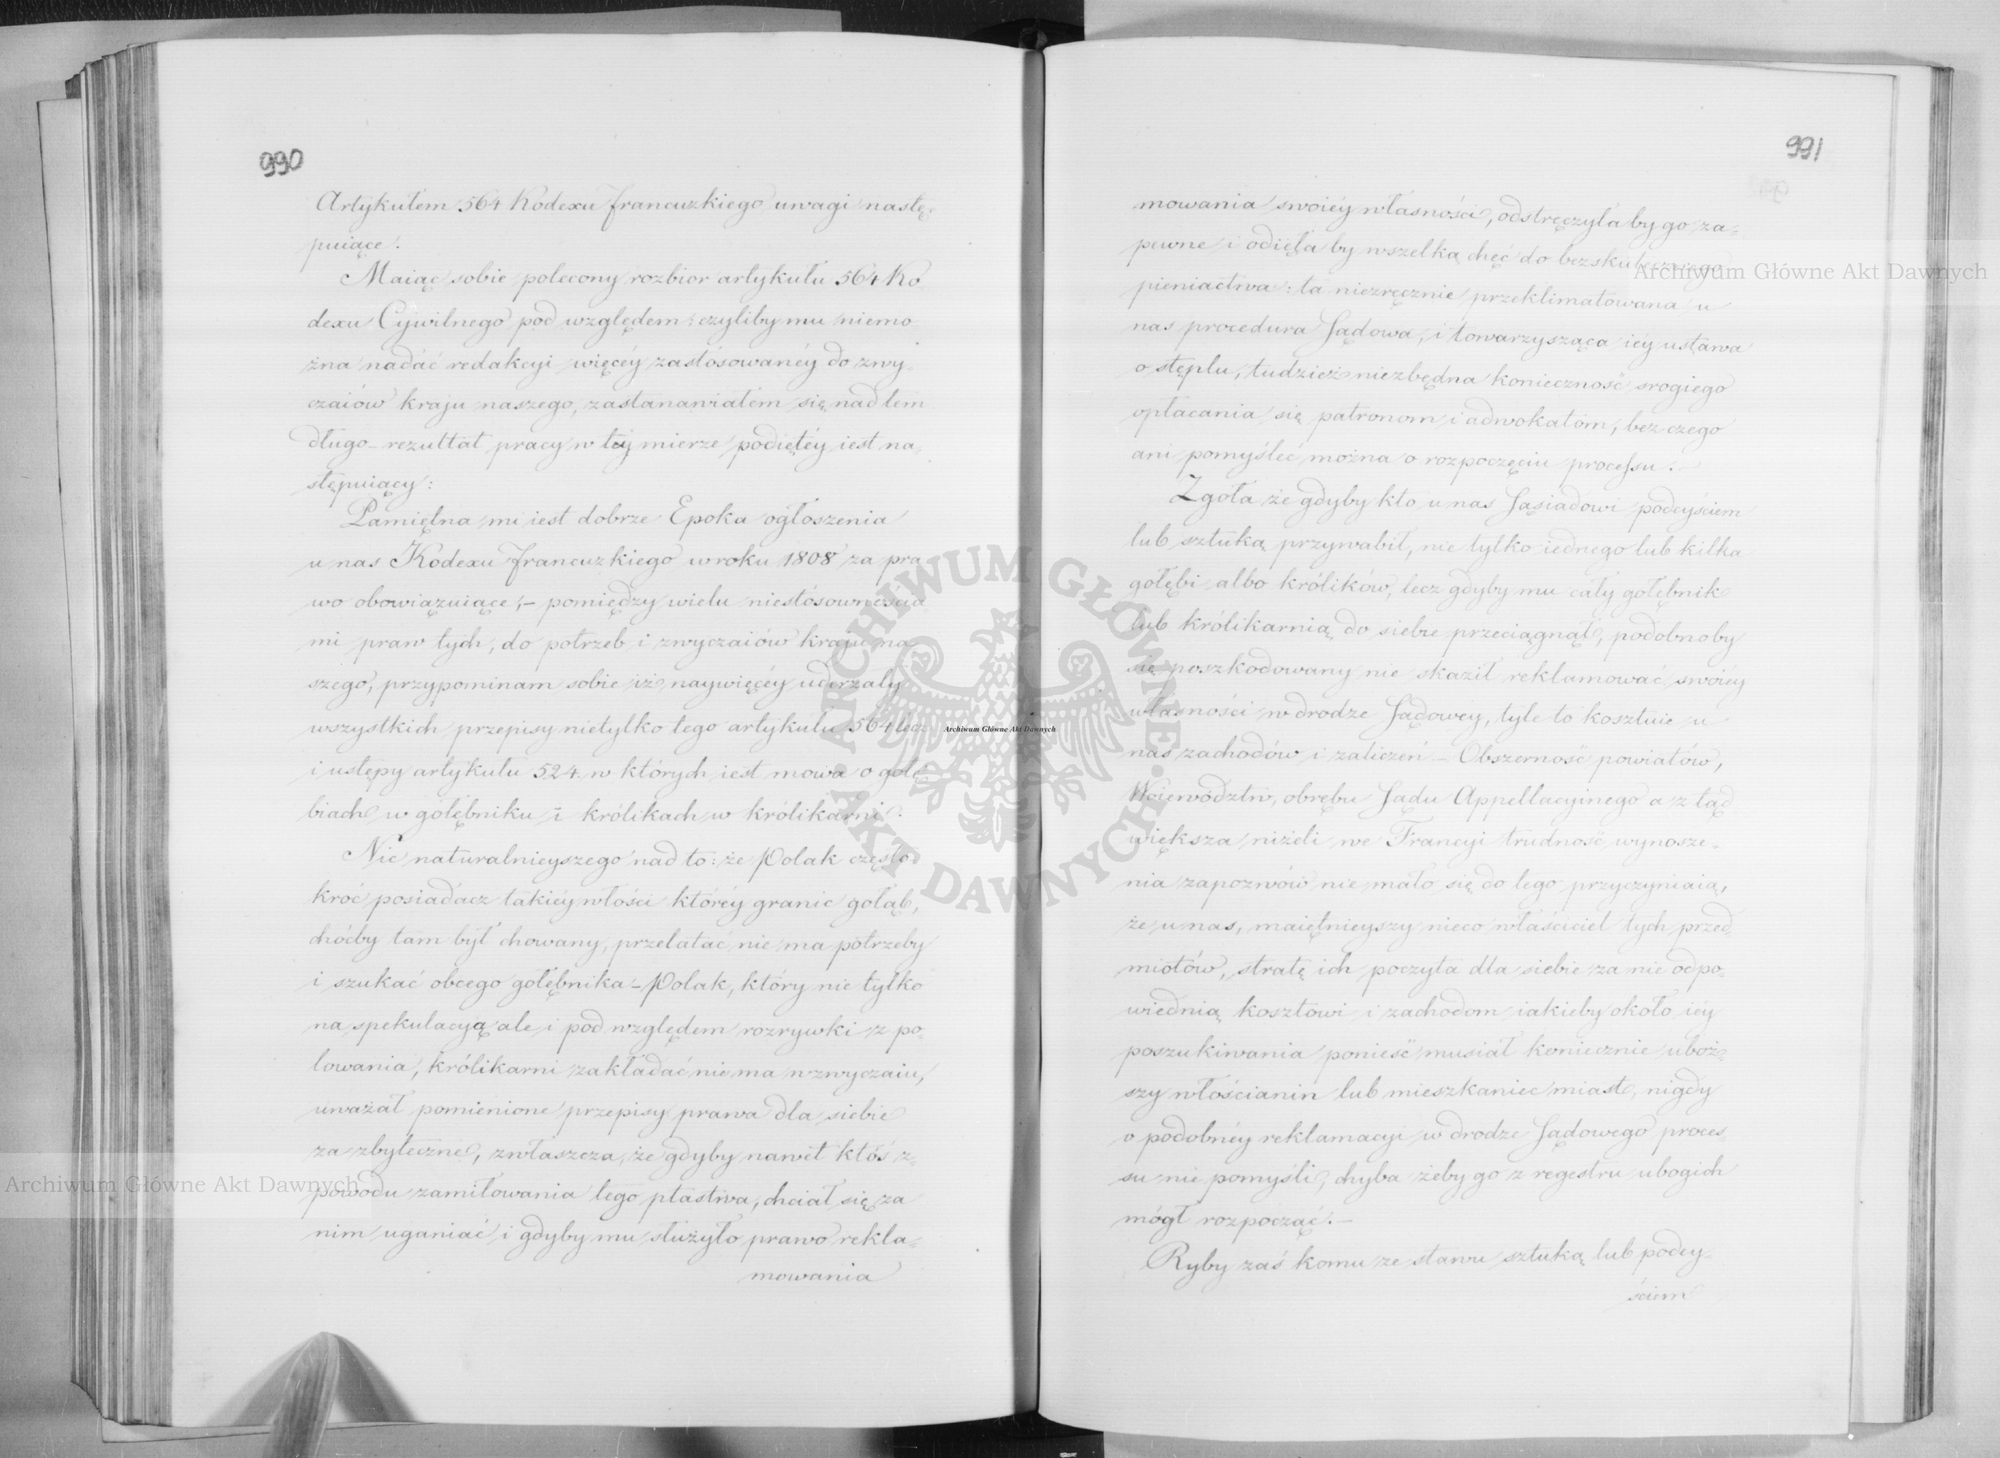 990
Artykułem 564 Kodexu francuzkiego uwagi nastę-
puiące.
Maiąc sobie polecony rozbior artykułu 564 Ko
dexu Cywilnego pod względem: czyliby mu niemo
żna nadać redakcyi więcéy zastósowanéy do zwy-
czaiów kraju naszego, zastanawiałem się nad tém
długo – rezultat pracy w téy mierze podiętéy iest na-
stępuiący:
Pamiętna mi iest dobrze Epoka ogłoszenia
u nas Kodexu francuzkiego w roku 1808 za pra
wo obowiązuiące, – pomiędzy wielu niestósownościa
mi praw tych, do potrzeb i zwyczaiów kraju na-
szego, przypominam sobie iż naywięcéy uderzały
wszystkich przepisy nietylko tego artykułu 564 lecz
i ustępy artykułu 524. w których iest mowa o gołę-
biach w gołębniku i królikach w królikarni.
Nic naturalnieyszego nad to: że Polak często
kroć posiadacz takiéy włości któréy granic gołąb,
choćby tam był chowany, przelatać nie ma potrzeby
i szukać obcego gołębnika – Polak, który nie tylko
na spekulacyą ale i pod względem rozrywki z po-
lowania, królikarni zakładać nie ma w zwyczaiu,
uważał pomienione przepisy prawa dla siebie
za zbyteczne, zwłaszcza, że gdyby nawet któś z
powodu zamiłowania tego ptastwa, chciał się za
nim uganiać i gdyby mu służyło prawo rekla-
mowania
991
mowania swoiéy własności, odstręczyła by go za-
pewne i odięła by wszelką chęć do bezskutecznego
pieniactwa: ta niezręcznie przeklimatowana u
nas procedura Sądowa, i towarzysząca iéy ustawa
o stęplu, tudzież niezbędna konieczność srogiego
opłacania się patronom i adwokatóm, bez czego
ani pomyśleć można o rozpoczęciu processu. –
Zgoła że gdyby kto u nas Sąsiadowi podeyściem
lub sztuką przywabił, nie tylko iednego lub kilka
gołębi albo królików, lecz gdyby mu cały gołębnik
lub królikarnią do siebie przeciągnął, podobnoby
się poszkodowany nie skaził reklamować swoiéy
własności w drodze Sądowéy, tyle to kosztuie u
nas zachodów i zaliczeń – Obszerność powiatów,
Woiewództw, obrębu Sądu Appellacyinego a z tąd
większa niżeli we Francyi trudność wynosze-
nia zapozwów nie mało się do tego przyczyniaią,
że u nas, maiętnieyszy nieco właściciel tych przed-
miotów, stratę ich poczyta dla siebie za nie odpo-
wiednią kosztowi i zachodom iakieby około iéy
poszukiwania ponieść musiał koniecznie uboż-
szy włościanin lub mieszkaniec miast, nigdy
o podobnéy reklamacyi w drodze Sądowego proces
su nie pomyśli, chyba żeby go z regestru ubogich
mógł rozpocząć. –
Ryby zaś komu ze stawu sztuką lub podey-
ściem
Archiwum Główne Akt Dawnych
Archiwum Główne Akt Dawnych
Archiwum Główne Akt Dawnych
ARCHIWUM GŁÓWNE AKT DAWNYCH